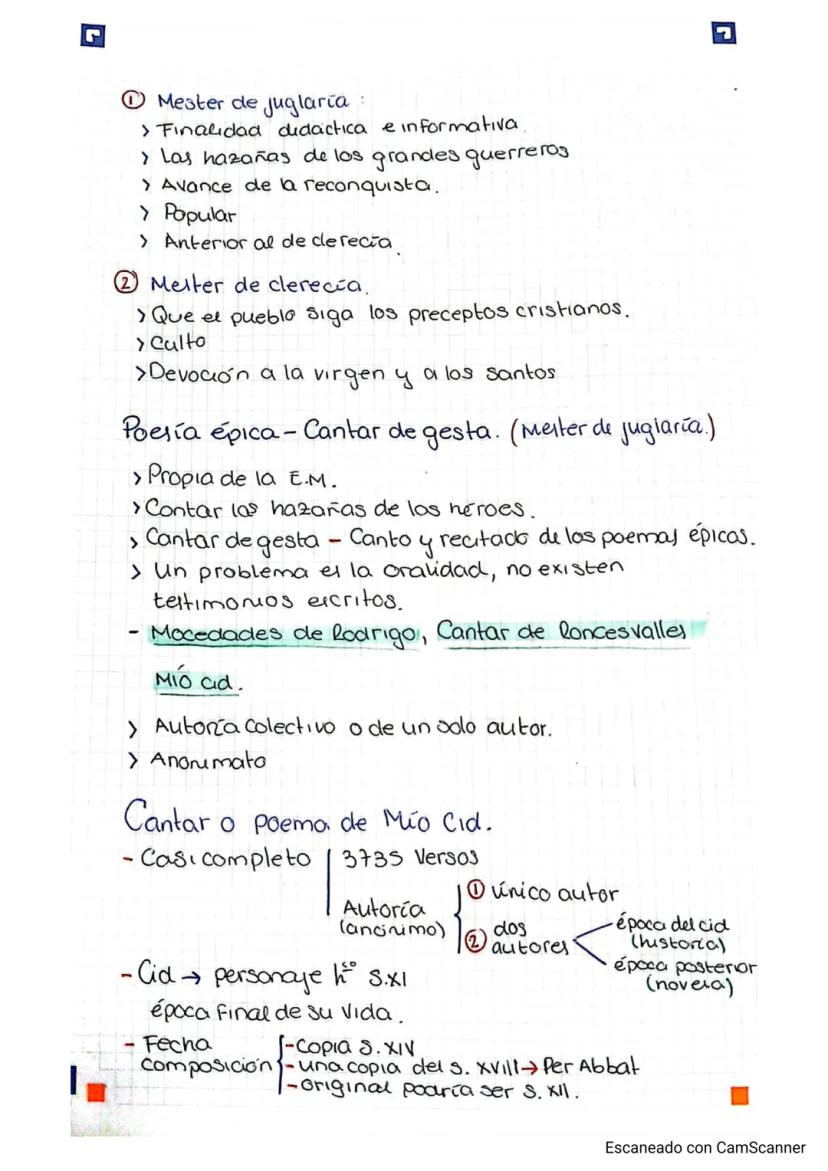 ① Mester de juglaría :
> Finalidad didáctica e informativa.
> Las hazañas de los grandes guerreros
> Avance de la reconquista.
> Popular
> Anterior al de clerecía.
② Mester de clerecía.
> Que el pueblo siga los preceptos cristianos.
> Culto
> Devoción a la virgen y a los santos
Poesía épica - Cantar de gesta. (Mester de juglaría.)
> Propia de la E.M.
> Contar las hazañas de los héroes.
> Cantar de gesta - Canto y recitado de los poemas épicos.
> Un problema es la oralidad, no existen
testimonios escritos.
- Mocedades de Rodrigo, Cantar de Roncesvalles
Mío cid.
> Autoría Colectivo o de un solo autor.
> Anonimato
Cantar o poema de Mío Cid.
- Casi completo | 3735 Versos
Autoría (anónimo)
① único autor
② dos autores
época del cid (historia)
época posterior (novela)
- Cid → personaje hco S.XI
época final de su vida.
- Fecha composición
- Copia S. XIV
- una copia del s. XVIII → Per Abbat
- original podría ser S. XII.
Escaneado con CamScanner